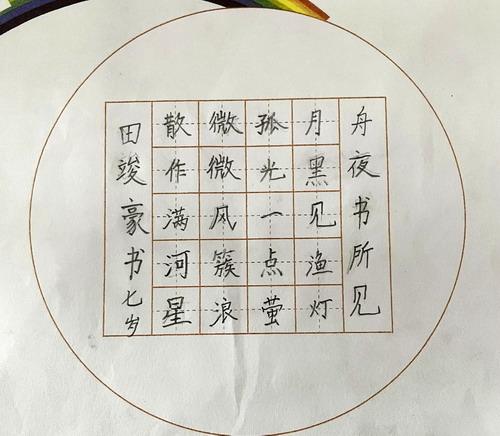 舟夜书所见
月黑见渔灯
孤光一点萤
微微风簇浪
散作满河星
田竣豪书七岁